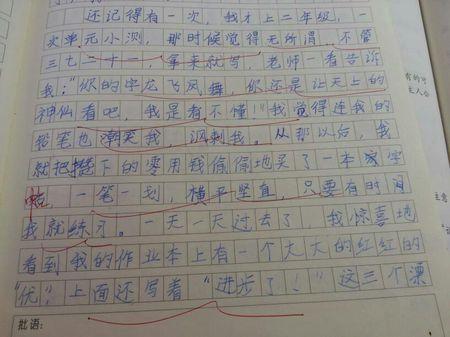 还记得有一次，我才上二年级，一
次单元小测，那时候觉得无所谓，不管
三七二十一，拿来就写，老师一看告诉
我："你的字龙飞凤舞，你还是让天上的
神仙看吧，我是看不懂！"我觉得连我的
铅笔也潮笑我，讽刺我。从那以后，我
就把攒下的零用钱偷偷地买了一本字
帖，一笔一划，横平竖直，只要有时间
我就练习。一天一天过去了，我惊喜地
看到我的作业本上有一个大大的红红的
"优"，上面还写着"进步了！"这三个漂
批语：